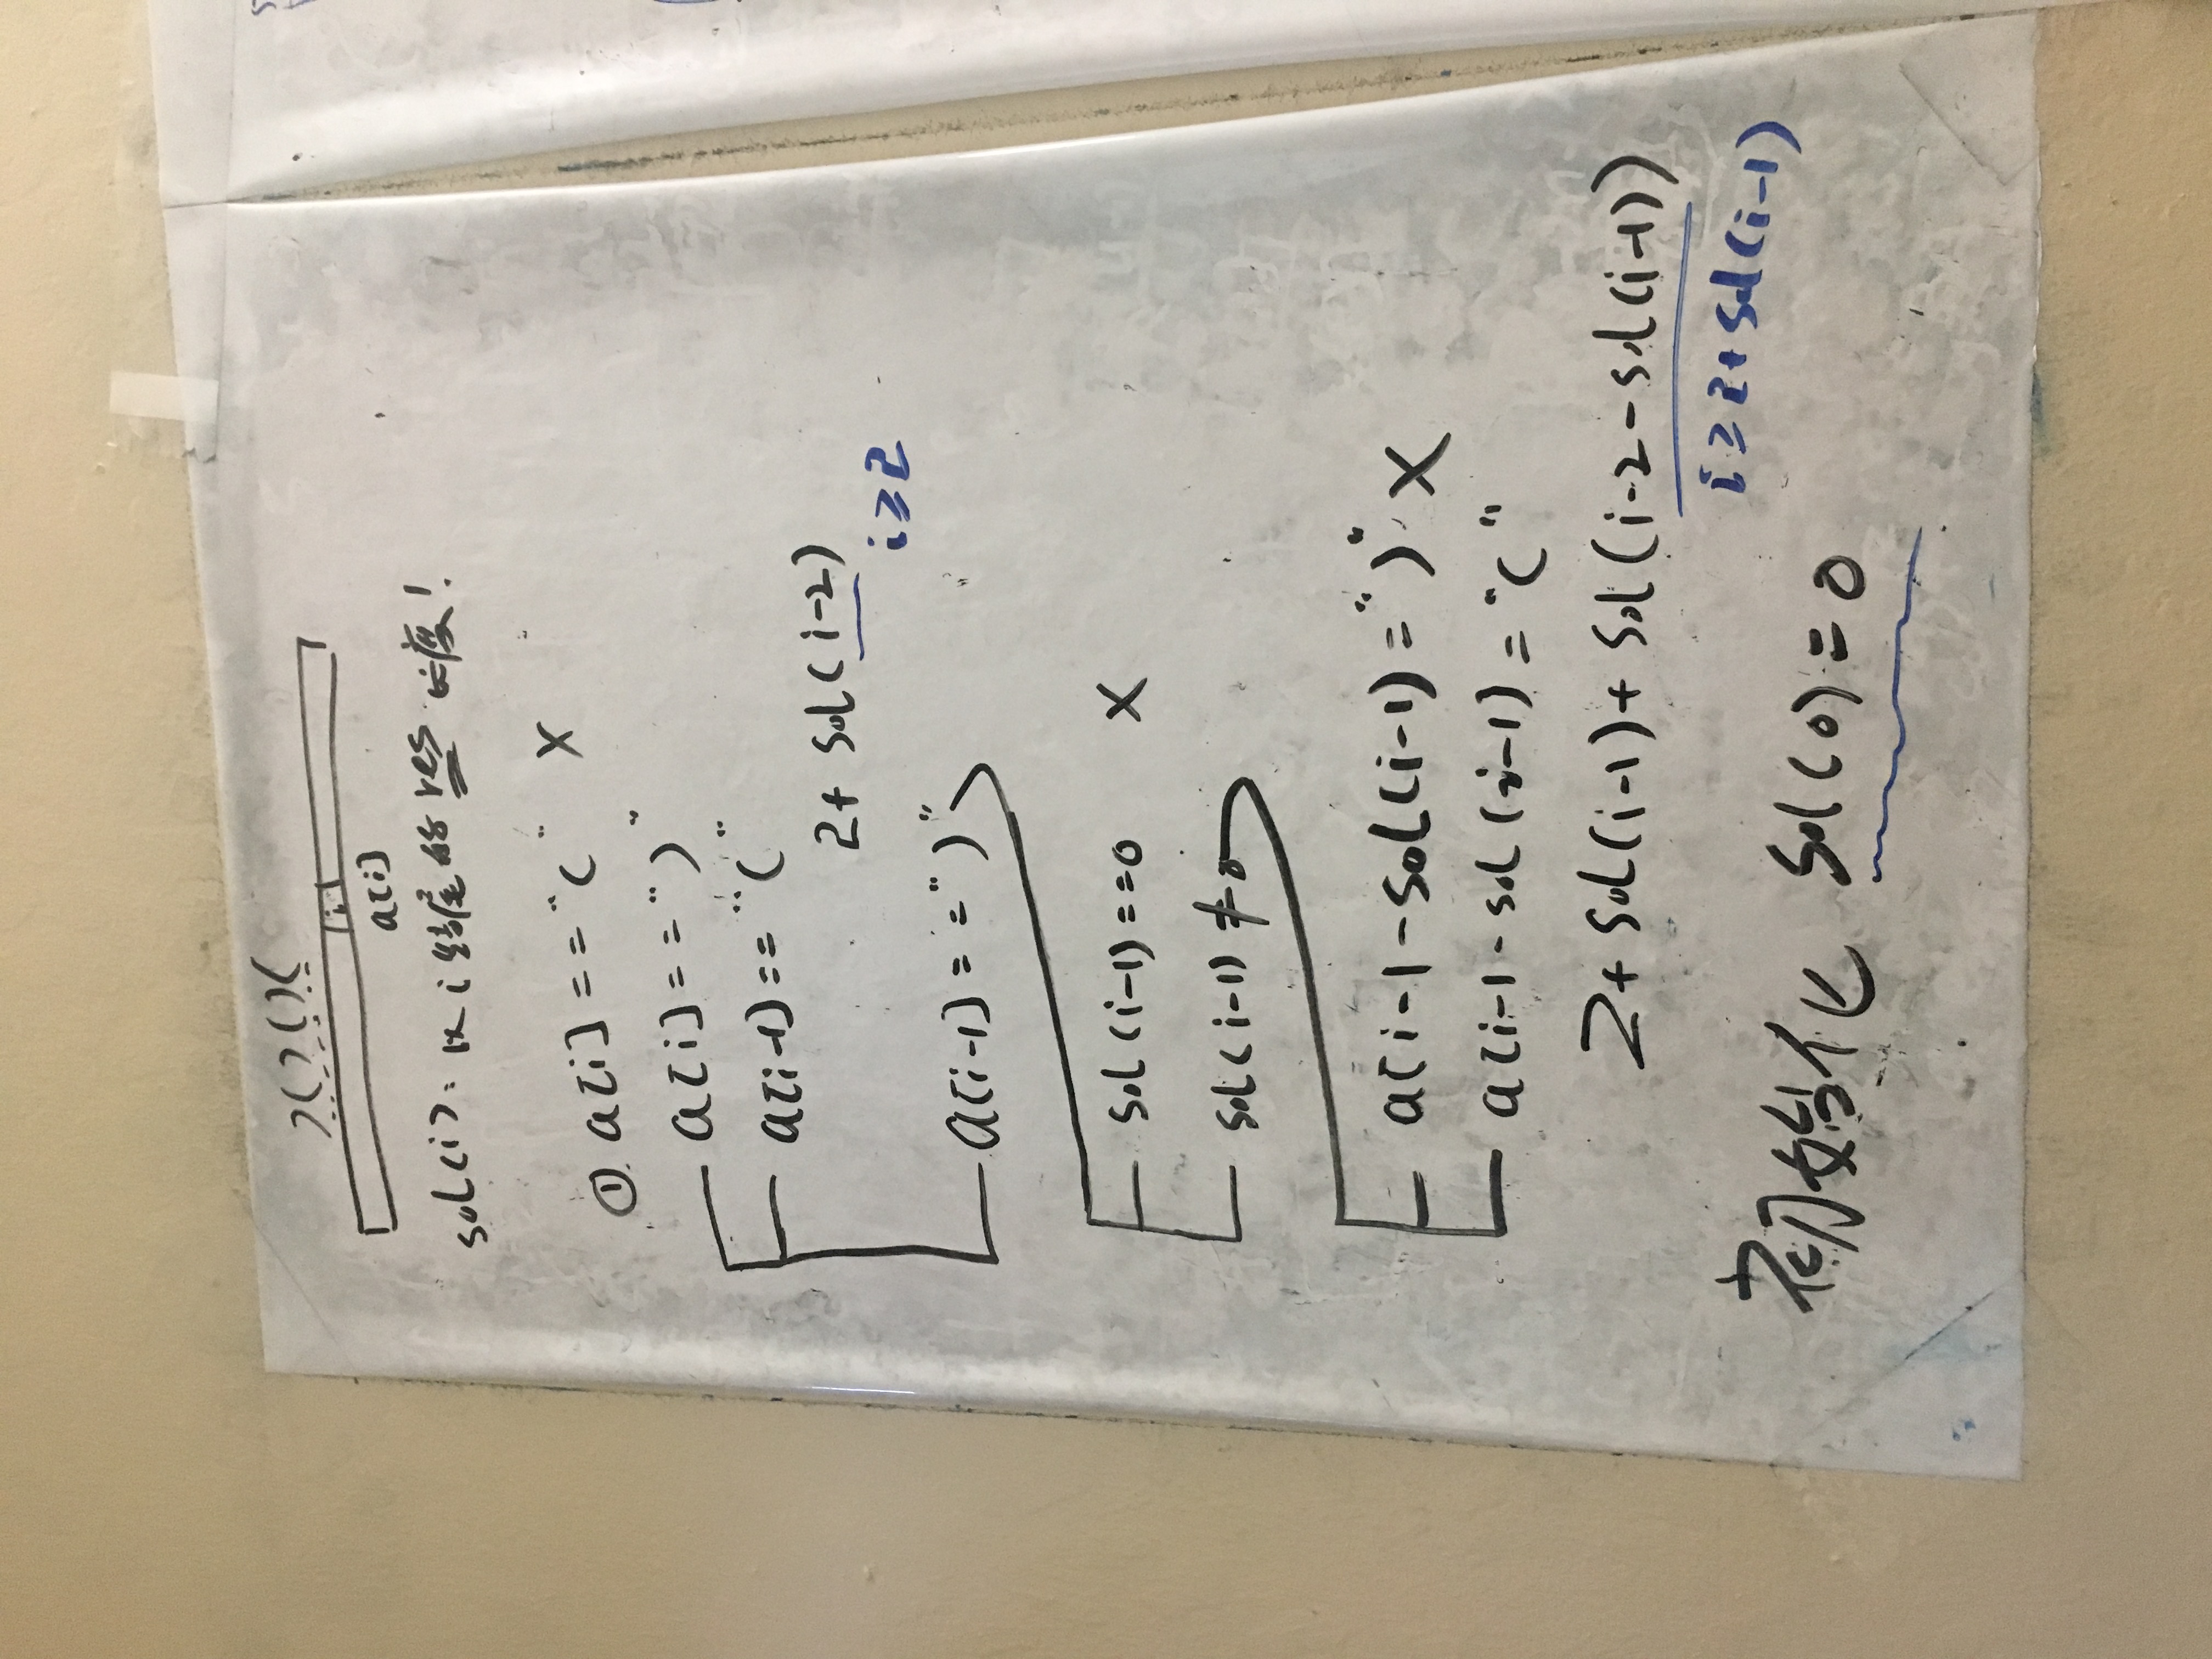 )()()(
i
a[i]
sol(i): 以 i 结尾的 res 长度!
① a[i] == "(" X
a[i] == ")"
a[i-1] == "("
2+ sol(i-2)
i≥2
a[i-1] == ")"
sol(i-1)==0 X
sol(i-1) ≠0
a[i-1-sol(i-1) = ")" X
a[i-1-sol(i-1) = "("
2+ sol(i-1)+ sol(i-2-sol(i-1))
i≥2+sol(i-1)
初始化 sol(0)=0